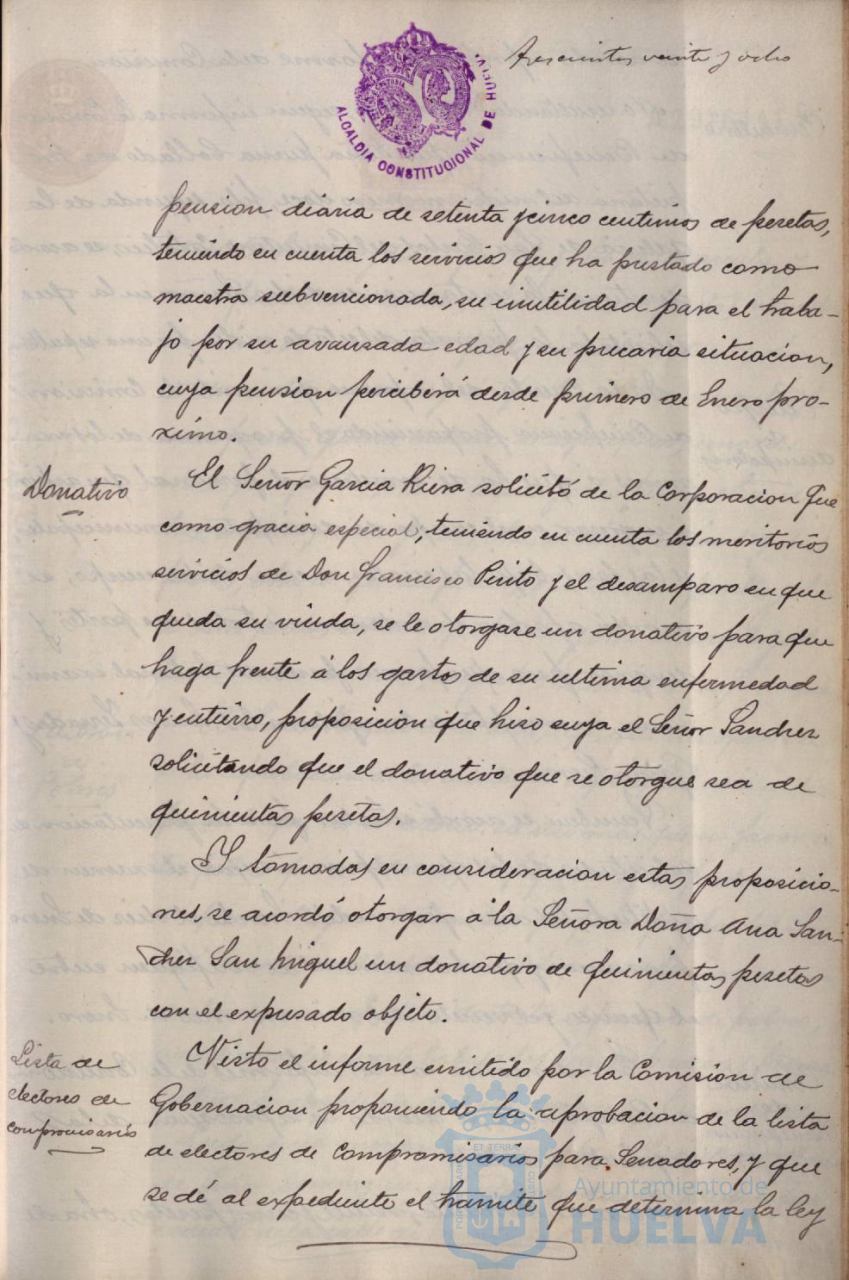 Trescientos veinte y ocho
ALCALDIA CONSTITUCIONAL DE HUELVA
pension diaria de setenta y cinco centimos de pesetas,
teniendo en cuenta los servicios que ha prestado como
maestra subvencionada, su inutilidad para el traba-
jo por su avanzada edad y su precaria situacion,
cuya pension percibirá desde primero de Enero pro-
ximo.
Donativo
El Señor Garcia Riera solicitó de la Corporacion que
como gracia especial, teniendo en cuenta los meritorios
servicios de Don Francisco Pinto y el desamparo en que
queda su viuda, se le otorgase un donativo para que
haga frente á los gastos de su ultima enfermedad
y entierro, proposicion que hizo suya el Señor Sanchez
solicitando que el donativo que se otorgue sea de
quinientas pesetas.
Y tomadas en consideracion estas proposicio-
nes, se acordó otorgar á la Señora Doña Ana San-
chez San Miguel un donativo de quinientas pesetas
con el expresado objeto.
Lista de
electores de
compromisarios
Visto el informe emitido por la Comision de
Gobernacion proponiendo la aprobacion de la lista
de electores de compromisarios para Senadores, y que
se dé al expediente el tramite que determina la ley
Ayuntamiento de
HUELVA